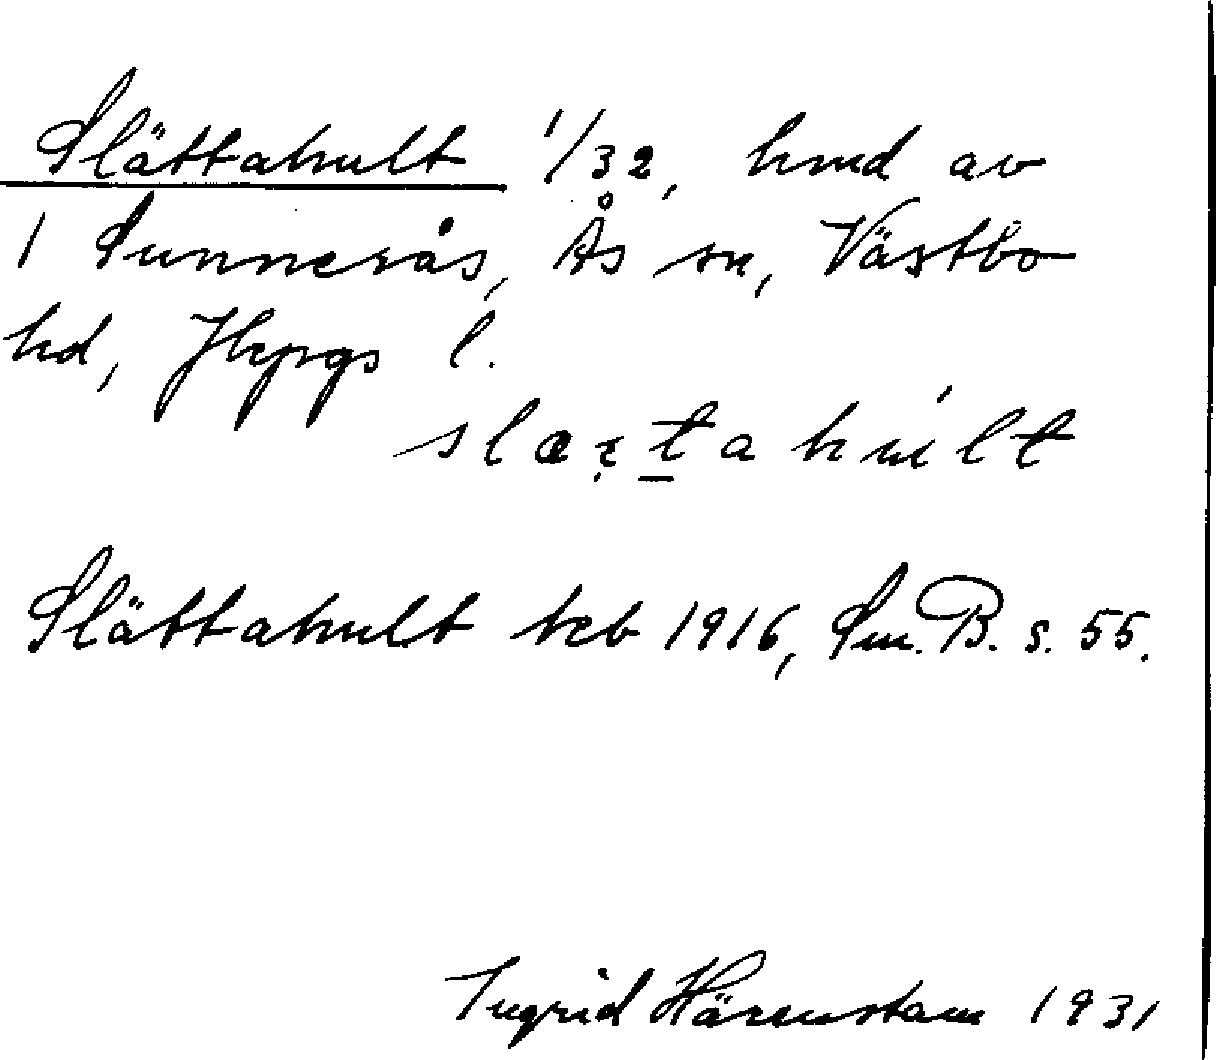 Slättahult 1/32, hmd av
1 Sunnerås, Ås sn, Västbo
hd, Jkpgs l.
Slättahult keb 1916, Sm. B. s. 55.
Ingrid Härenstam 1931